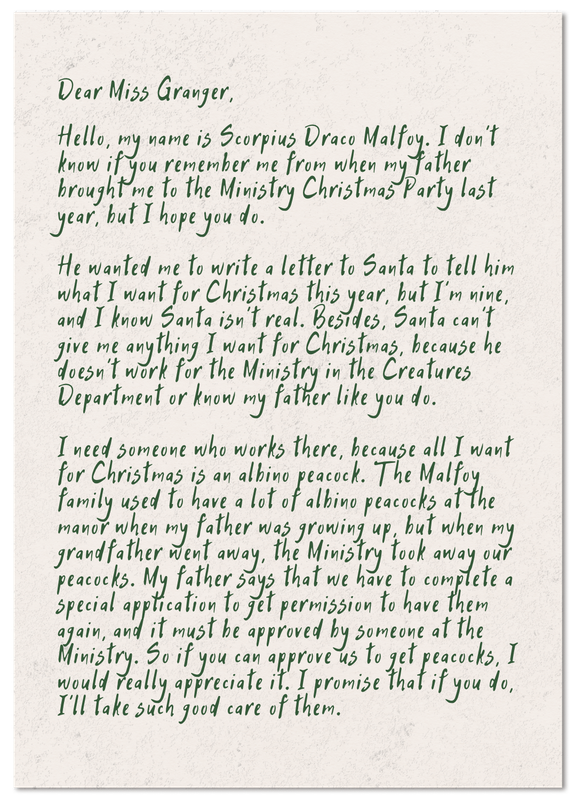 Dear Miss Granger,
Hello, my name is Scorpius Draco Malfoy. I don't
know if you remember me from when my father
brought me to the Ministry Christmas Party last
year, but I hope you do.
He wanted me to write a letter to Santa to tell him
what I want for Christmas this year, but I'm nine,
and I know Santa isn't real. Besides, Santa can't
give me anything I want for Christmas, because he
doesn't work for the Ministry in the Creatures
Department or know my father like you do.
I need someone who works there, because all I want
for Christmas is an albino peacock. The Malfoy
family used to have a lot of albino peacocks at the
manor when my father was growing up, but when my
grandfather went away, the Ministry took away our
peacocks. My father says that we have to complete a
special application to get permission to have them
again, and it must be approved by someone at the
Ministry. So if you can approve us to get peacocks, I
would really appreciate it. I promise that if you do,
I'll take such good care of them.